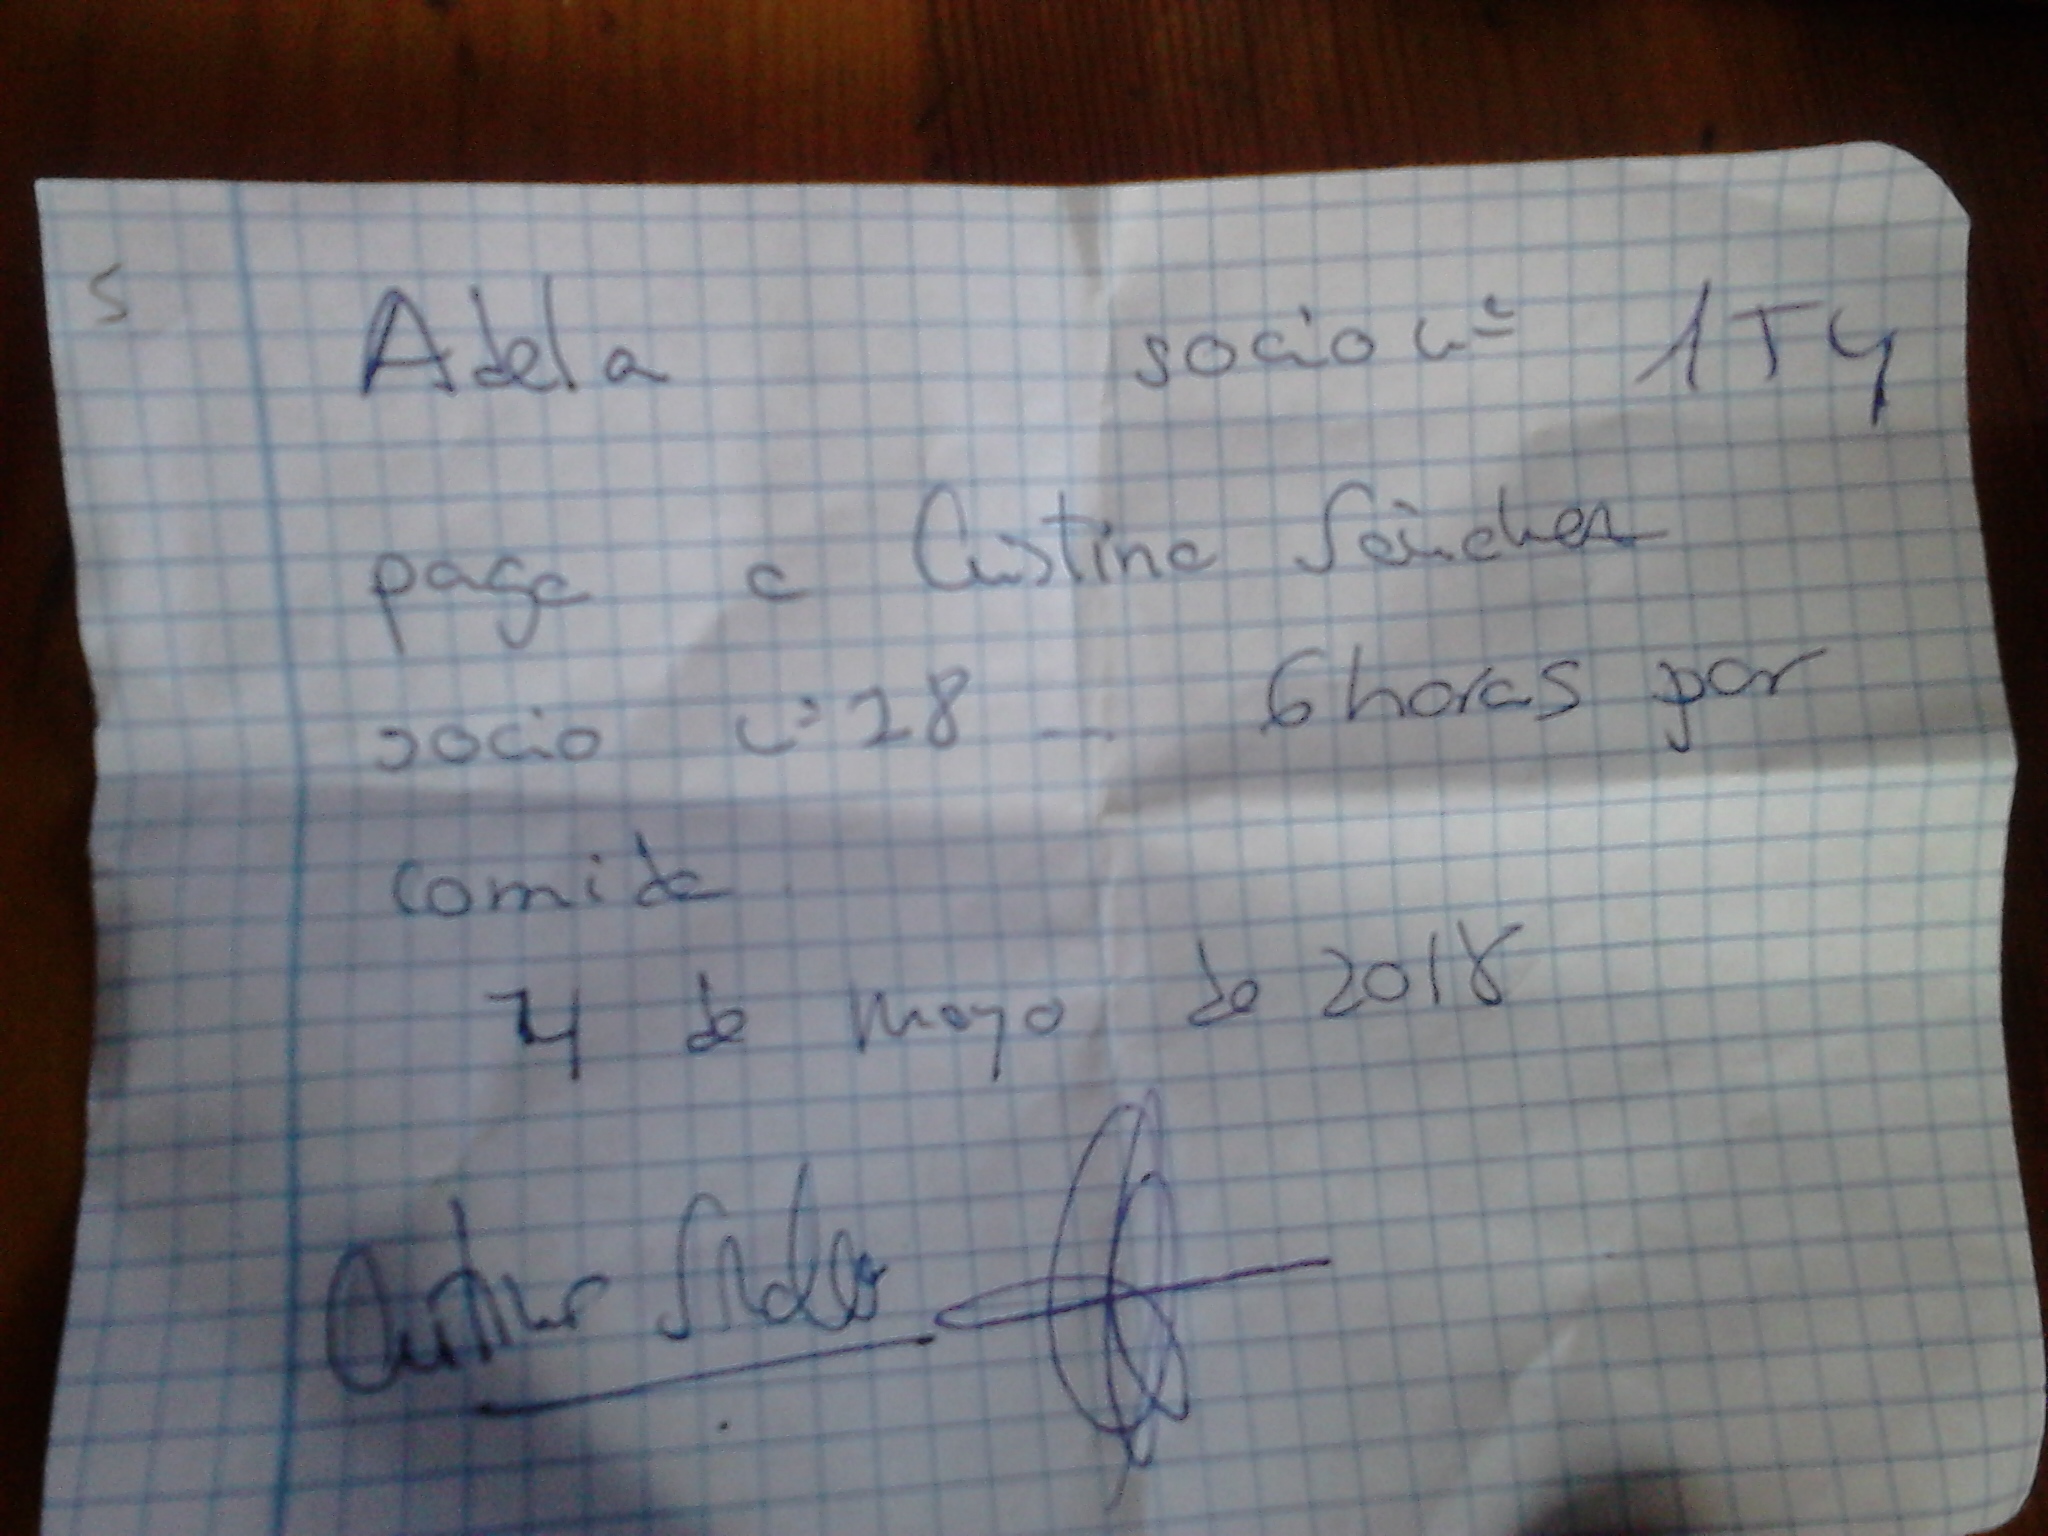 5 Adela socio nº 154
paga a Cristina Sánchez
socio nº 28 — 6 horas por
comida
4 de mayo de 2018
Cristina Sánchez